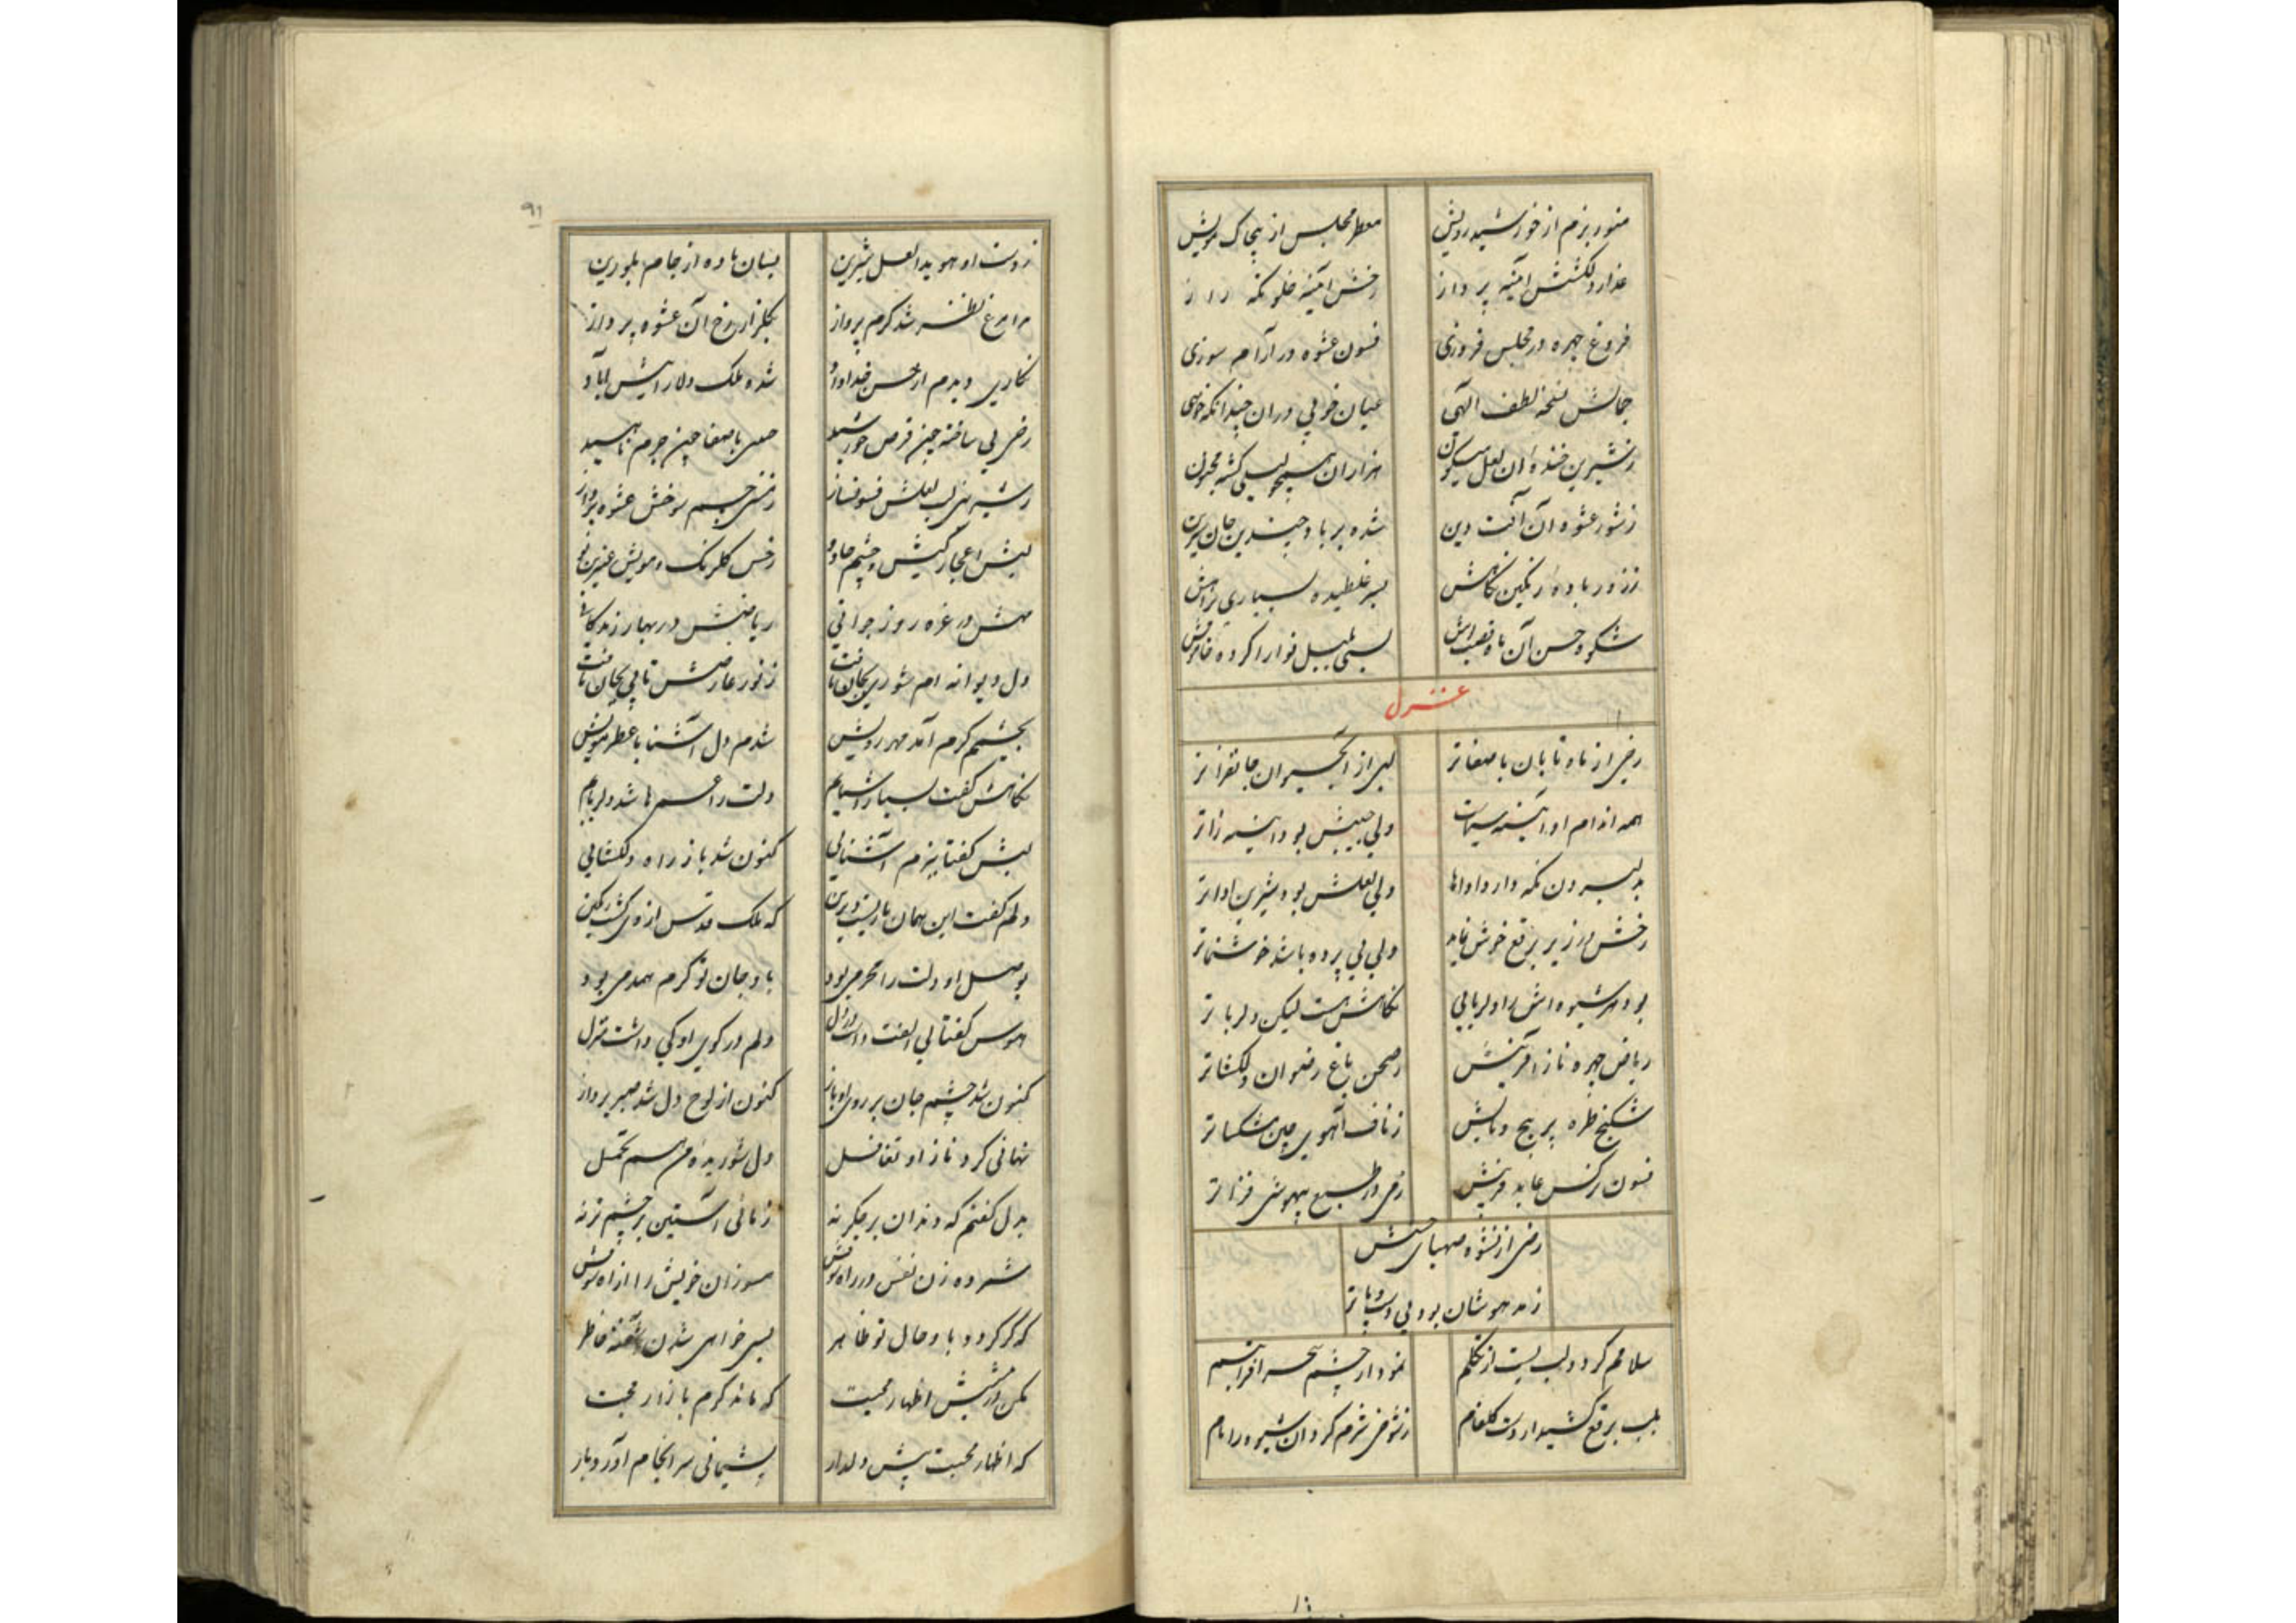 منور بزم از خورشید رویش معطر مجلس از پیچاک مویش
عذار دلکشش آئینه پرداز رخش آئینه خلوتکه راز
فروغ چهره در مجلس فروزی فسون عشوه در آرام سوزی
جمالش نسخه لطف الهی عیان خوبی دران چندانکه خواهی
ز شیرین خنده آن لعل میکون هزاران همچو لیلی کشته مجنون
ز شور عشوه آن آفت دین شده برباد چندین جان شیرین
ز زور باده رنکین نکاهش بسر غلطیده
شکوه حسن آن بسی بلبل نوا را کرده خاموش
غزل
رخی از ماه تابان با صفاتر لبی از آب حیوان جانفزاتر
همه اندام او آئینه سیماست ولی جبینش بود آئینه زاتر
بدلبردن نکه دارد اداها ولی لعلش بود شیرین اداتر
رخش در زیر برقع خوش نماید ولی بی پرده باشد خوشنماتر
بود هر شیوه اش را دلربایی نکاهش هست لیکن دلرباتر
ریاض چهره ناز آفرینش ز صحن باغ رضوان دلکشاتر
شکنج طره پر پیچ و تابش ز ناف آهوی چین مشکساتر
فسون نرکس عابد فریبش ز می در طبع بیهوشی فزاتر
رضی از نشوه صهبای حسنش
ز مدهوشان بود بی دست و پاتر
سلامم کرد و لب بست از تکلم نمود از چشم سحر افرا تبسم
بلب برقع کشید از دست کلفام ز شوخی شرم کرد آن شیوه را نام
۹۱
ز دست او هویدا لعل شیرین بسان باده از جام بلورین
مرا مرغ نظر شد کرم پرواز بکلزار رخ آن عشوه پرداز
نکاری دیدم از حسن خداداد شده ملک دلارائیش آباد
رخی بی ساخته چون قرص خورشید با صفا چون جرم ناهید
ز شیرینی لب لعلش فسونساز چشم شوخش عشوه پرداز
لبش اعجاز کیش و چشم جادو رخش کلرنک و مویش عنبرین بو
مهش در غره روز جوانی ریاضش در بهار زندکانی
دل دیوانه ام شوری بجان یافت ز نور عارضش تابی بجان تافت
بچشمم کرم آمد مهر رویش شدم دل آشنا با عطر مویش
نکاهش کفت بسیار آشنایم دلت را عمرها شد دلربایم
لبش کفتا بیزم آشنایی کنون شد باز راه دلکشایی
دلم کفت این همان یار دیرین که ملک قدس از وی کشت رنکین
بوصل او دلت را محرمی بود باو جان تو کرم همدمی بود
هوس کفتا بی الفت داشت در دل دلم در کوی او کی داشت منزل
کنون شد چشم جان بر روی او باز کنون از لوح دل شد صبر پرداز
نهانی کرد ناز او تغافل دل شوریده من هم تحمل
بدل کفتم که دندان بر جکر نه زمانی آستین بر چشم تر نه
شمرده زن نفس در راه سوزان خویش را از آه
که کر کردد باو حال تو ظاهر بسی خواهی شدن آشفته خاطر
مکن در پیشش اظهار محبت که ماند کرم بازار محبت
که اظهار محبت پیش دلدار پشیمانی سر انجام آورد بار